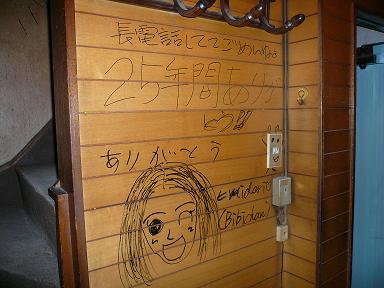 長電話しててごめんねo
25年間ありが
とう!!
ありがとう
midori
(Bibidan)